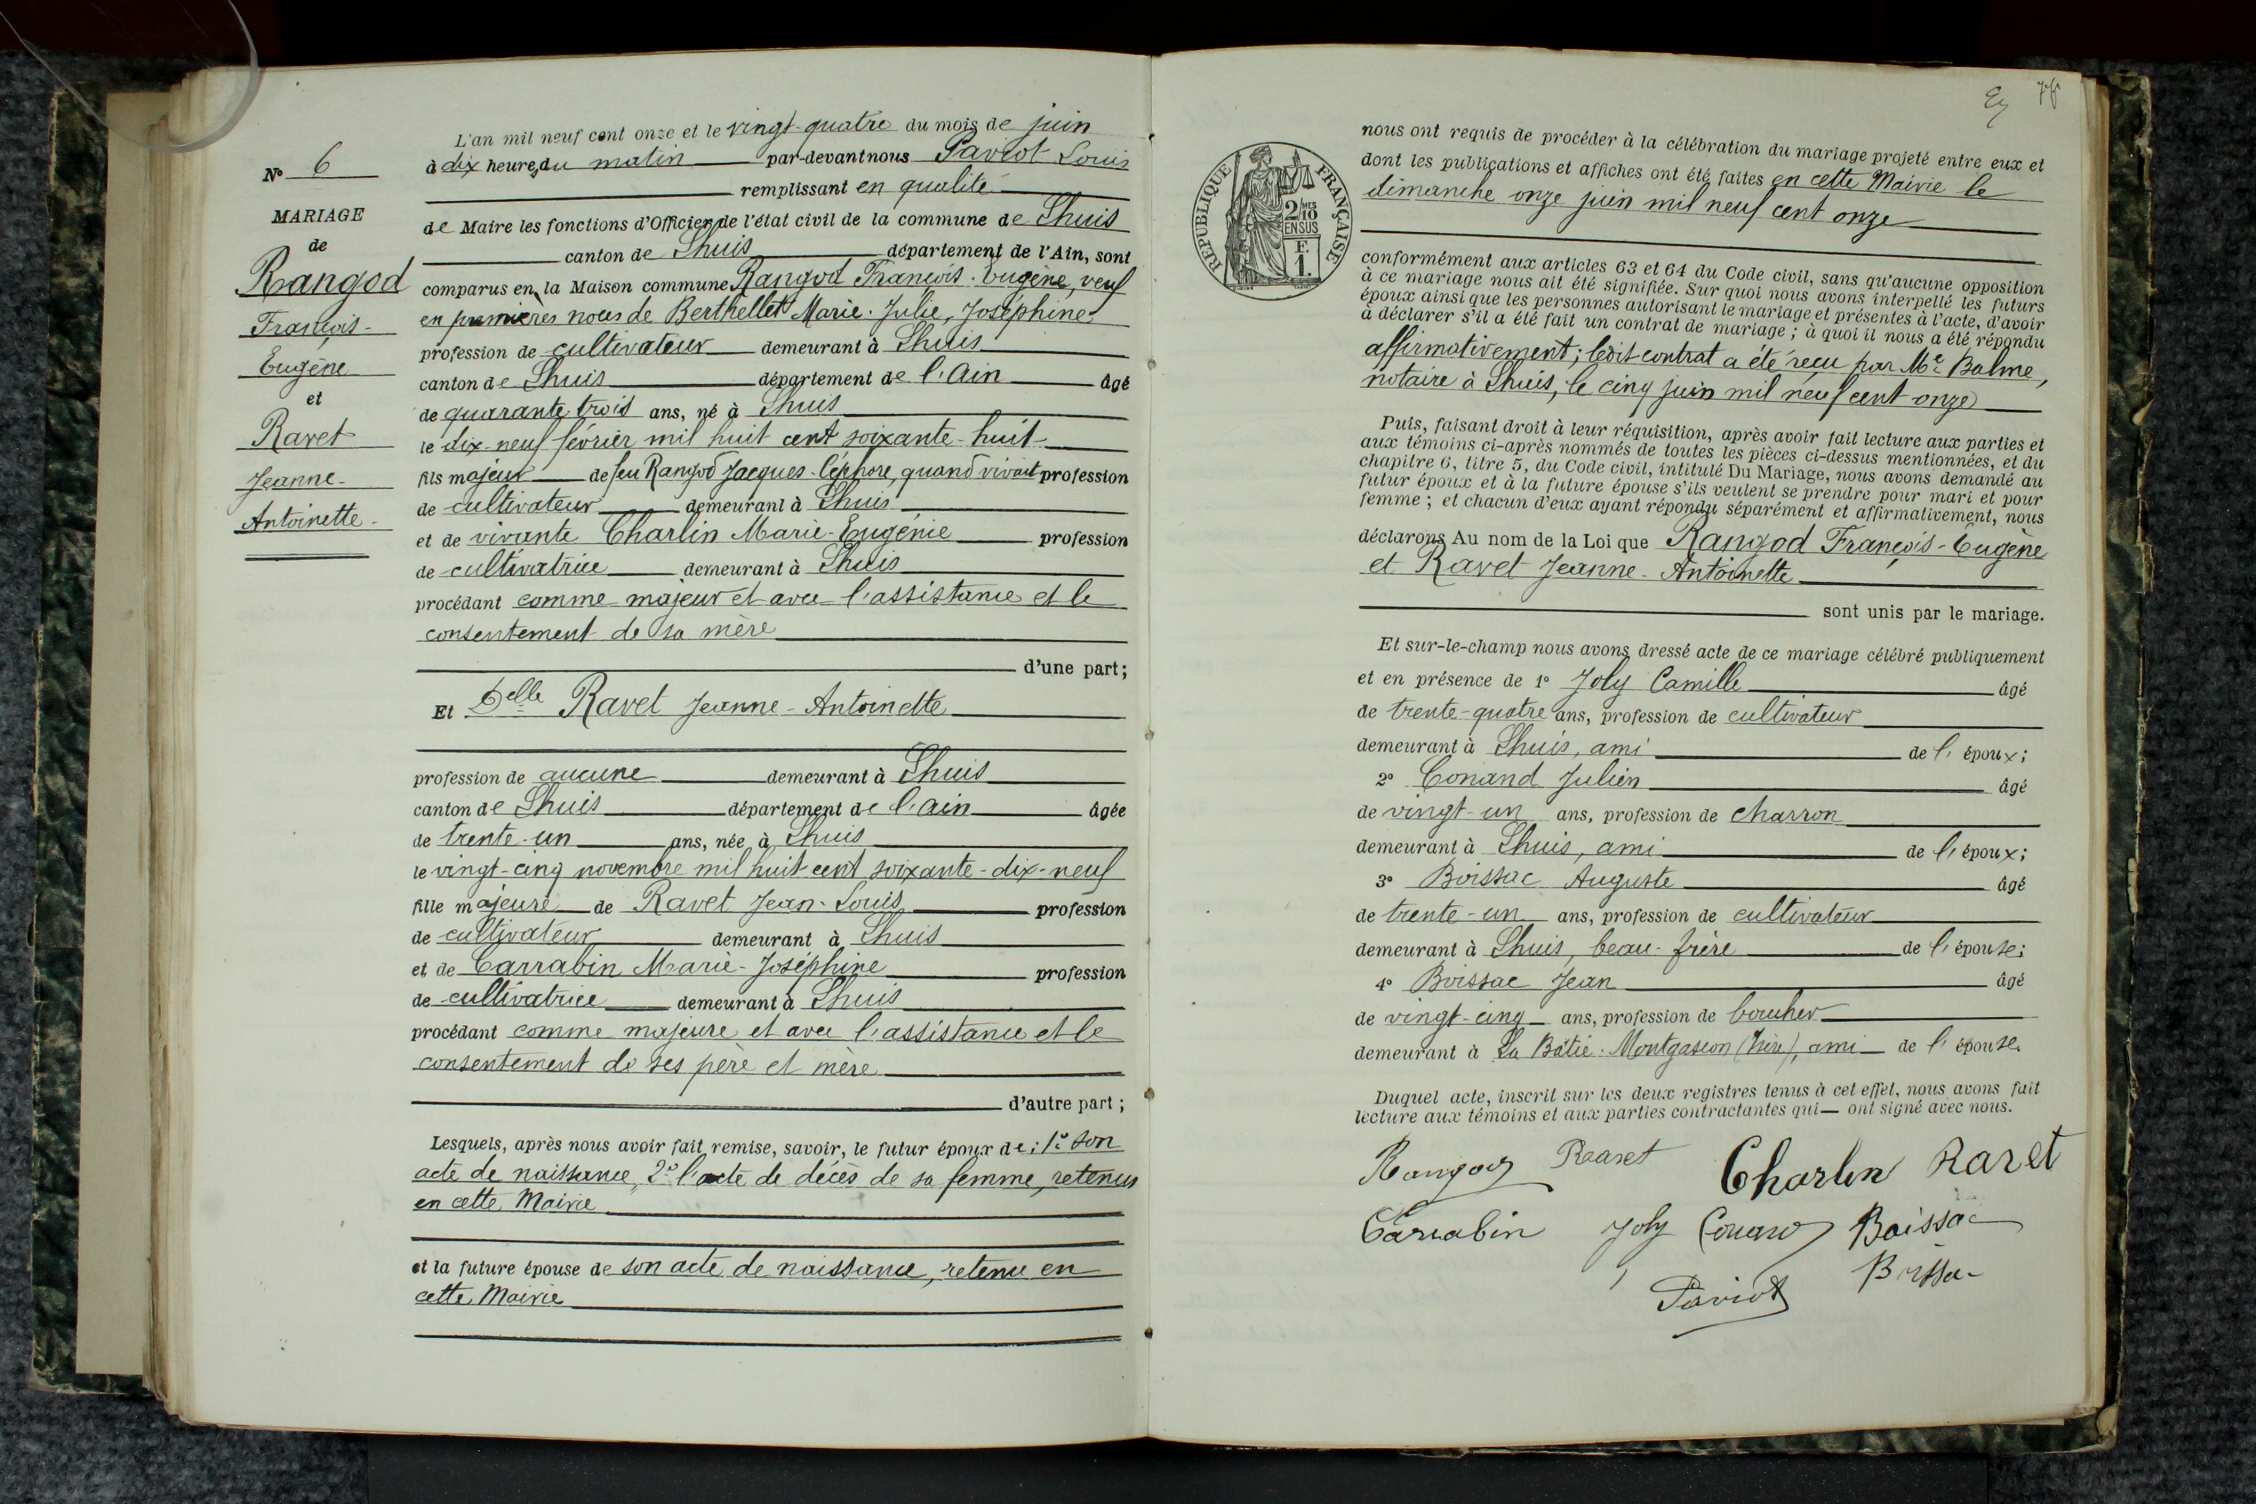 N° 6
MARIAGE
de
Rangod
François-
Eugène
et
Ravet
Jeanne-
Antoinette-
L'an mil neuf cent onze et le vingt-quatre du mois de juin
à dix heures du matin par-devant nous Paviot Louis
remplissant en qualité
de Maire les fonctions d'Officier de l'état civil de la commune de Lhuis
canton de Lhuis département de l'Ain, sont
comparus en la Maison commune Rangod François-Eugène, veuf
en premières noces de Berthellet Marie-Julie, Joséphine
profession de cultivateur demeurant à Lhuis
canton de Lhuis département de l'Ain âgé
de quarante trois ans, né à Lhuis
le dix-neuf février mil huit cent soixante-huit
fils majeur de feu Rangod Jacques-Céphore, quand vivait profession
de cultivateur demeurant à Lhuis
et de vivante Charlin Marie-Eugénie profession
de cultivatrice demeurant à Lhuis
procédant comme majeur et avec l'assistance et le
consentement de sa mère
d'une part;
Et Delle Ravet Jeanne-Antoinette
profession de aucune demeurant à Lhuis
canton de Lhuis département de l'Ain âgée
de trente-un ans, née à Lhuis
le vingt-cinq novembre mil huit cent soixante-dix-neuf
fille majeure de Ravet Jean-Louis profession
de cultivateur demeurant à Lhuis
et de Carrabin Marie-Joséphine profession
de cultivatrice demeurant à Lhuis
procédant comme majeure et avec l'assistance et le
consentement de ses père et mère
d'autre part;
Lesquels, après nous avoir fait remise, savoir, le futur époux de: 1° son
acte de naissance, 2° l'acte de décès de sa femme, retenus
en cette Mairie
et la future épouse de son acte de naissance, retenu en
cette Mairie
76
RÉPUBLIQUE FRANÇAISE
2/10 MES
EN SUS
F.
1.
nous ont requis de procéder à la célébration du mariage projeté entre eux et
dont les publications et affiches ont été faites en cette Mairie le
dimanche onze juin mil neuf cent onze
conformément aux articles 63 et 64 du Code civil, sans qu'aucune opposition
à ce mariage nous ait été signifiée. Sur quoi nous avons interpellé les futurs
époux ainsi que les personnes autorisant le mariage et présentes à l'acte, d'avoir
à déclarer s'il a été fait un contrat de mariage; à quoi il nous a été répondu
affirmativement; ledit contrat a été reçu par Me Balme,
notaire à Lhuis, le cinq juin mil neuf cent onze
Puis, faisant droit à leur réquisition, après avoir fait lecture aux parties et
aux témoins ci-après nommés de toutes les pièces ci-dessus mentionnées, et du
chapitre 6, titre 5, du Code civil, intitulé Du Mariage, nous avons demandé au
futur époux et à la future épouse s'ils veulent se prendre pour mari et pour
femme; et chacun d'eux ayant répondu séparément et affirmativement, nous
déclarons Au nom de la Loi que Rangod François-Eugène
et Ravet Jeanne-Antoinette
sont unis par le mariage.
Et sur-le-champ nous avons dressé acte de ce mariage célébré publiquement
et en présence de 1° Joly Camille âgé
de trente-quatre ans, profession de cultivateur
demeurant à Lhuis, ami de l'époux;
2° Conand Julien âgé
de vingt-un ans, profession de charron
demeurant à Lhuis, ami de l'époux;
3° Boissac Auguste âgé
de trente-un ans, profession de cultivateur
demeurant à Lhuis, beau-frère de l'épouse;
4° Boissac Jean âgé
de vingt-cinq ans, profession de boucher
demeurant à La Bâtie-Montgascon (Isère), ami de l'épouse.
Duquel acte, inscrit sur les deux registres tenus à cet effet, nous avons fait
lecture aux témoins et aux parties contractantes qui ont signé avec nous.
Rangod Ravet Charlin Ravet
Carrabin Joly Conand Boissac
Boissac
Paviot